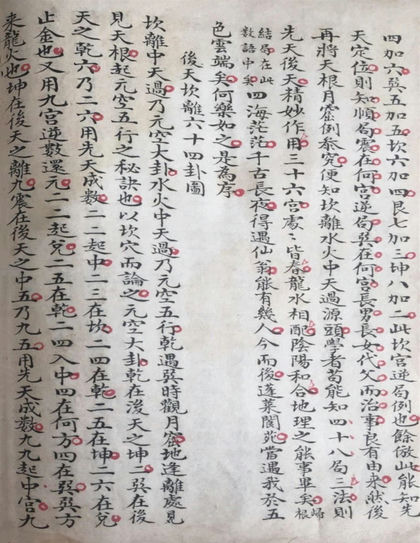 四加六巽五加五坎六加四艮七加三坤八加二此坎宮逆局例也餘倣此能知先
天定位則知順局震在何宮逆局巽在何宮長男長女代父而治事良有由來然後
再將天根月窟例參究便知坎離水火中天過源頭學者苟能知四十八局三法則
先天後天精妙作用三十六宮處々皆春龍水相配陰陽和合地理之能事畢矣根歸
結局在此數語中矣四海茫茫千古長夜得遇仙翁能有幾人今而後蓬萊閬苑當遇我於五
色雲端矣何樂如之是為序
後天坎離六十四卦圖
坎離中天過乃元空大卦水火中天過乃元空五行乾遇巽時觀月窟地逢離處見
見天根起元空五行之秘訣也以坎穴而論之元空大卦乾在後天之坤二巽在後
天之乾六乃二六用先天成數二二起中一三在坎二四在乾二五在坤二六在兌
止金也又用九宮逆數還元一二起兌一五在乾二四入中四在何方四在巽巽方
來龍火也坤在後天之離九震在後天之中五乃九五用先天成數九九起中宮九